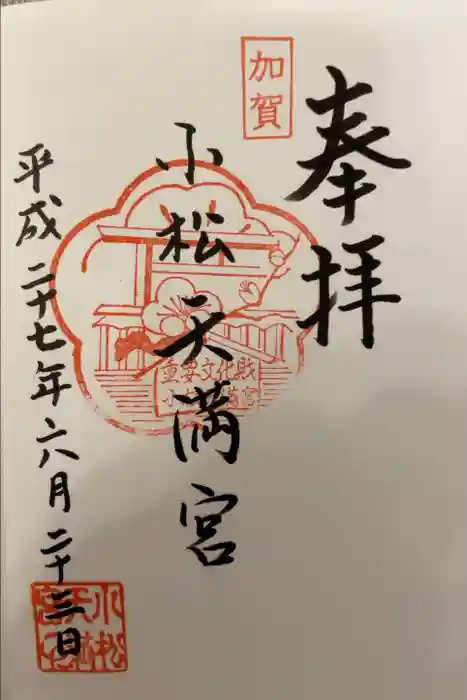 奉拝
加賀
小松天満宮
重要文化財
小松天満宮
平成二十七年六月二十三日